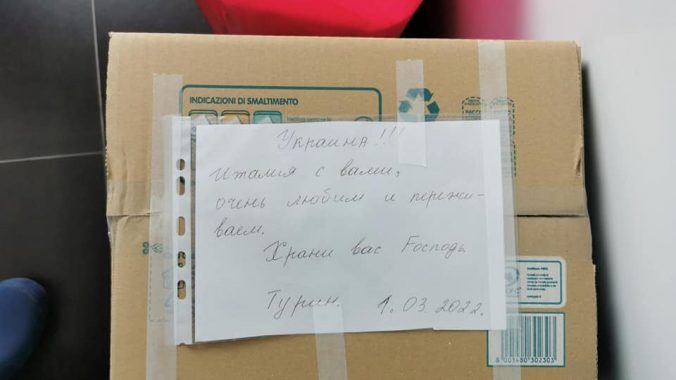 INDICAZIONI DI SMALTIMENTO
Украина!!!
Италия с вами,
очень любим и пережи-
ваем.
Храни вас Господь
Турин. 1.03.2022.
8001480302303